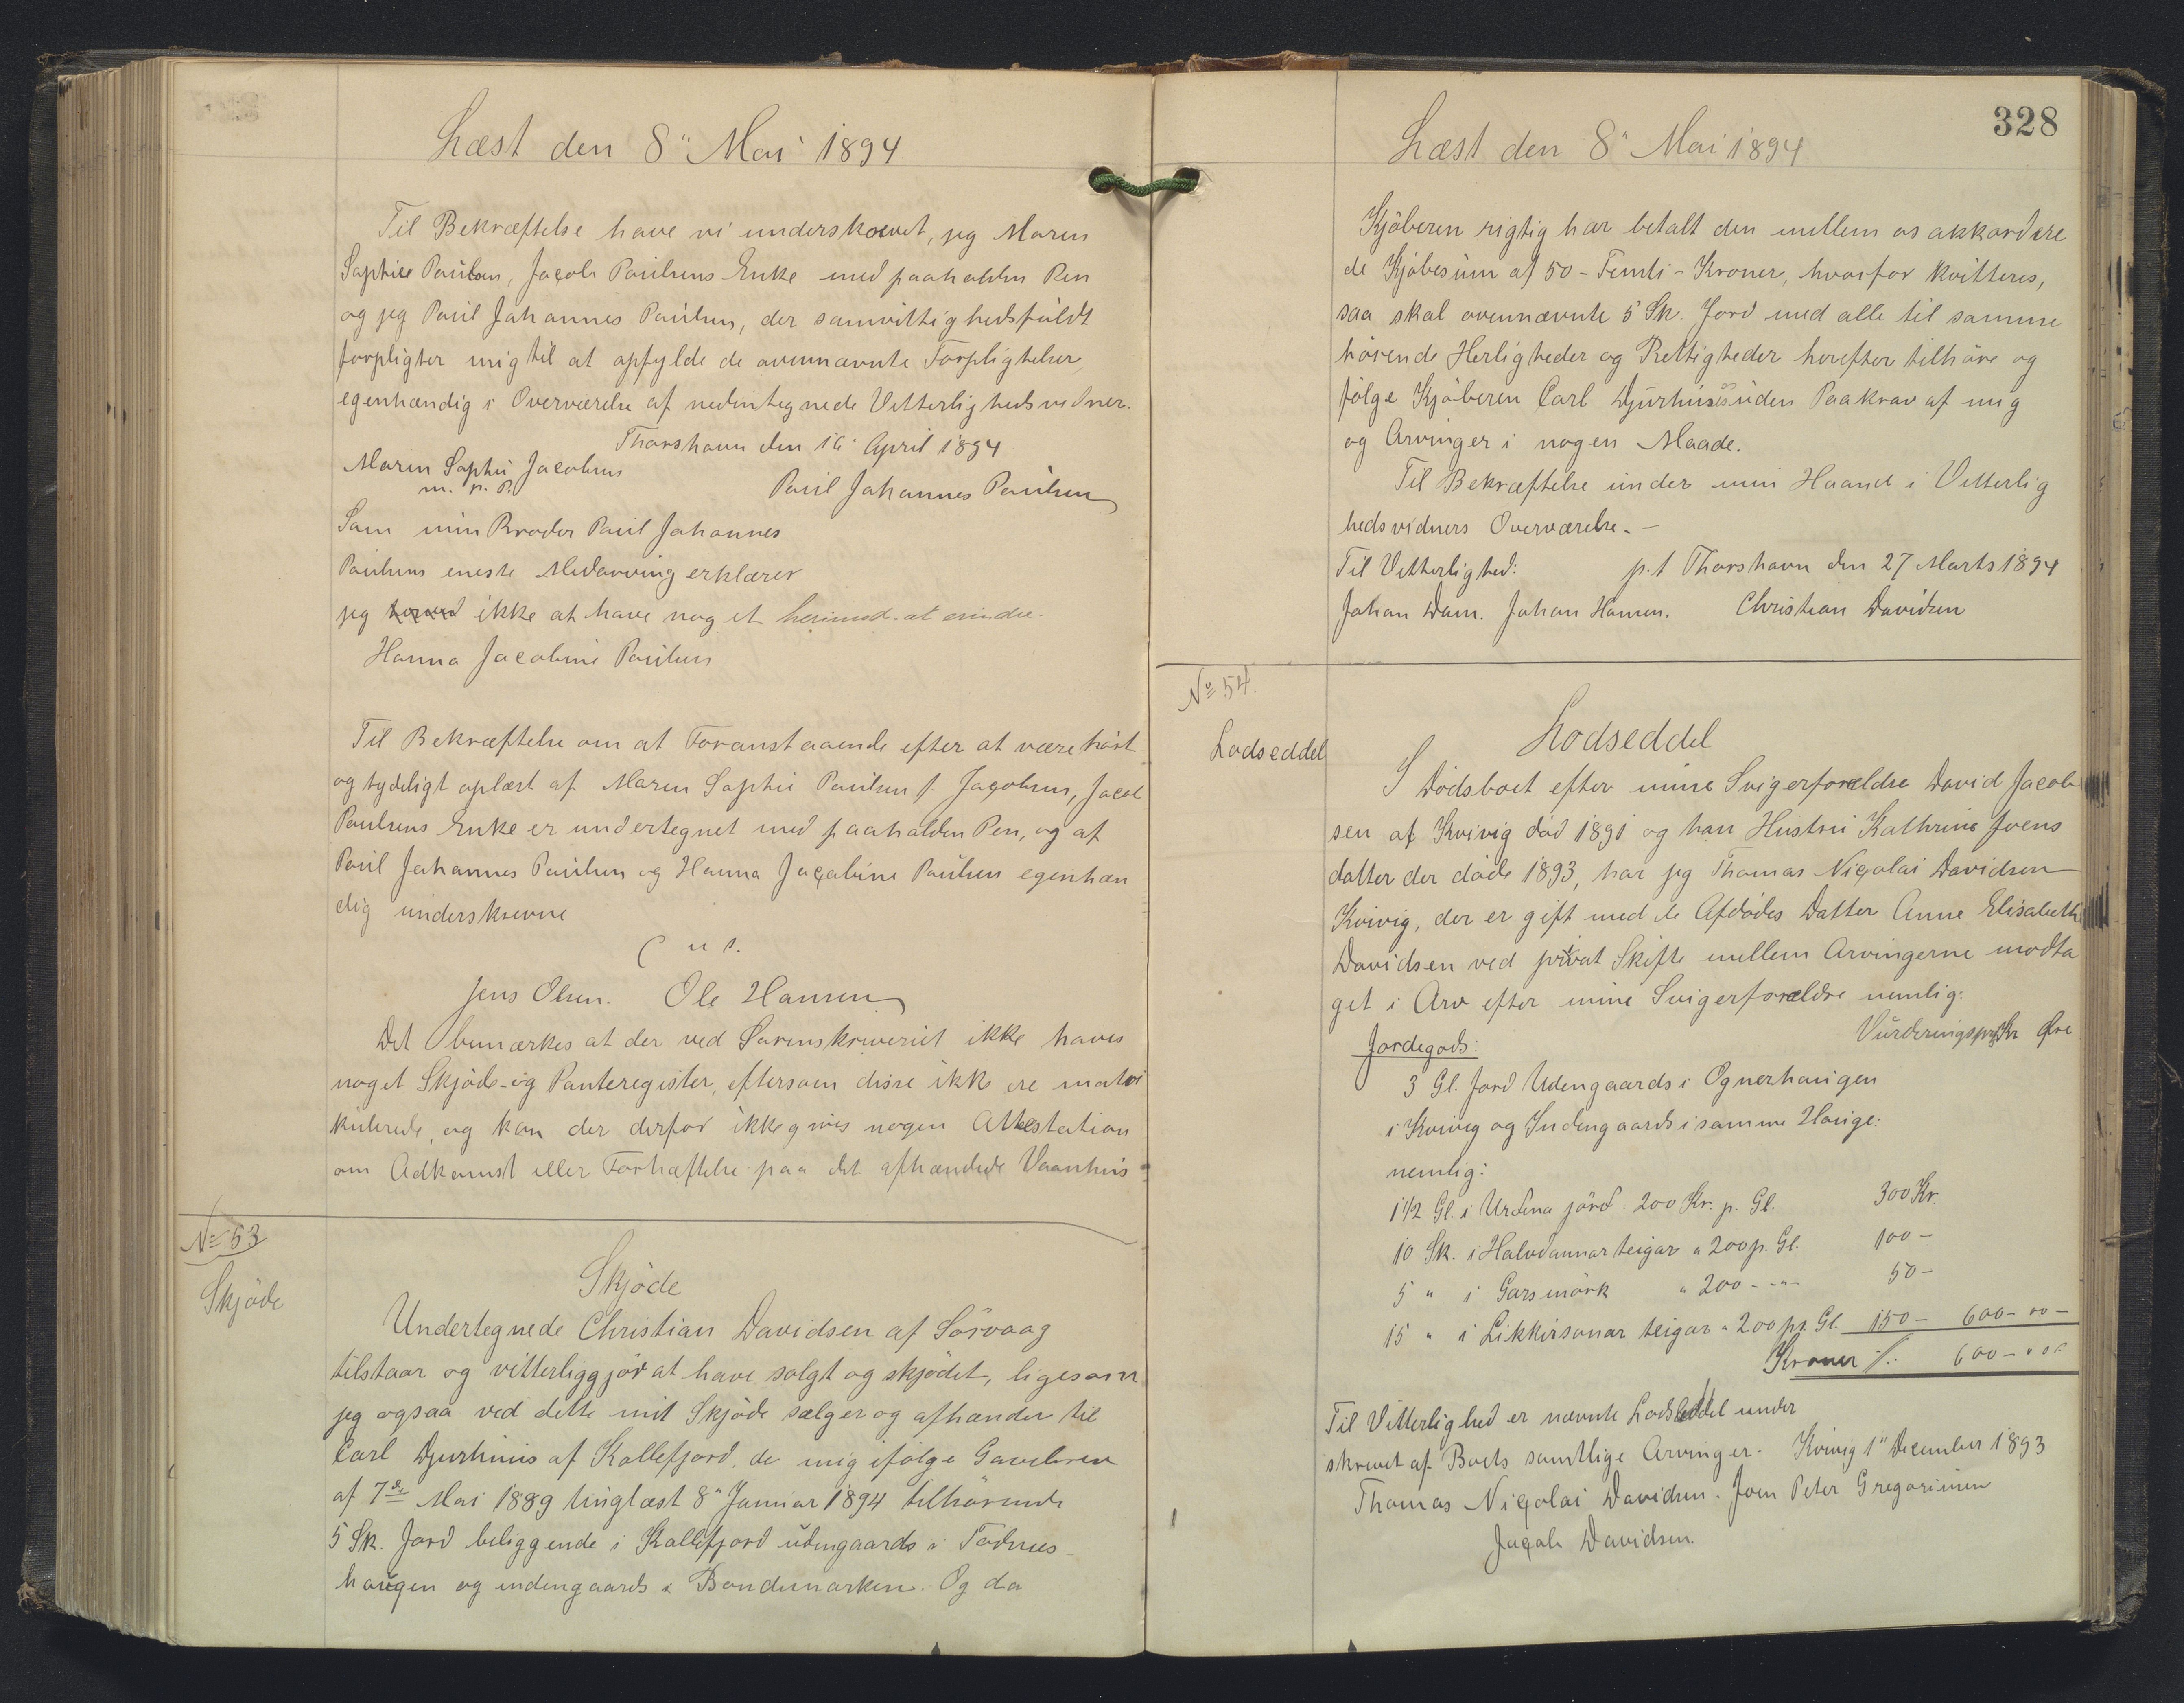 Læst den 8" Mai 1894
Til Bekræftelse have vi underskrevet, jeg Maren
Sophie Poulsen, Jacob Poulsens Enke med paaholden Pen
og jeg Poul Johannes Poulsen, der samvittighedsfuldt
forpligter mig til at opfylde de ovennævnte Forpligtelser,
egenhændig i Overværelse af nedentegnede Vitterlighedsvidner.
Thorshavn den 16 April 1894
Maren Sophie Jacobsens
m. p. P.
Poul Johannes Poulsen
Som min Broder Poul Johannes
Poulsens eneste Medarving erklærer
jeg ikke at have noget herimod at erindre.
Hanna Jacobine Poulsen
Til Bekræftelse om at Foranstaaende efter at være høit
og tydeligt oplæst af Maren Sophie Poulsen f. Jacobsens, Jacob
Poulsens Enke er undertegnet med paaholden Pen, og af
Poul Johannes Poulsen og Hanna Jacobine Poulsen egenhæn
dig underskrevne
Jens Olsen. Ole Hansen
Det bemærkes at der ved Sorenskriveriet ikke haves
noget Skjøde- og Panteregister, eftersom disse ikke ere matri
kulerede, og kan der derfor ikke gives nogen Attestation
om Adkomst eller Forhæftelse paa det afhændede Vaanhus
No 53
Skjøde
Skjøde
Undertegnede Christian Davidsen af Sørvaag
tilstaar og vitterliggjør at have solgt og skjødet, ligesom
jeg ogsaa ved dette mit Skjøde sælger og afhænder til
Carl Djurhuus af Kollefjord, de mig ifølge Gavebrev
af 7de Mai 1889 tinglæst 8" Januar 1894 tilhørende
5 Sk. Jord beliggende i Kollefjord udengaards i Todnes-
haugen og indengaards i Bondemarken. Og da
328
Læst den 8" Mai 1894
Kjøberen rigtig har betalt den mellem os akkordere
de Kjøbesum af 50 - Femti - Kroner, hvorfor kvitteres,
saa skal ovennævnte 5 Sk. Jord med alle til samme
hørende Herligheder og Rettigheder herefter tilhøre og
følge Kjøberen Carl Djurhuus uden Paakrav af mig
og Arvinger i nogen Maade.
Til Bekræftelse under min Haand i Vitterlig
hedsvidners Overværelse. -
Til Vitterlighed: p.t Thorshavn den 27 Marts 1894
Johan Dam. Johan Hansen. Christian Davidsen
No 54.
Lodseddel
Lodseddel
I Dødsboet efter mine Svigerforældre David Jacob
sen af Kvivig død 1891 og han Hustru Kathrine Joens
datter der døde 1893, har jeg Thomas Nicolai Davidsen
Kvivig, der er gift med de Afdødes Datter Anne Elisabeth
Davidsen ved privat Skifte mellem Arvingerne modta
get i Arv efter mine Svigerforældre nemlig:
Jordegods: Vurderingspris Kr Øre
3 Gl. Jord Udengaards i Ognerhaugen
i Kvivig og Indengaards i samme Hauge:
nemlig:
1 1/2 Gl. i Urdena jørd 200 Kr. p. Gl. 300 Kr.
10 Sk. i Halvdannar teigar a 200 p. Gl. 100 -
5 " i Garsmørk " 200 - - " - 50 -
15 " i Likkirsonar teigar a 200 pr. Gl. 150 - 600 - 00 -
Kroner /. 600 - 00
Til Vitterlighed er nævnte Lodseddel under
skrevet af Boets samtlige Arvinger. Kvivig 1" December 1893
Thomas Nicolai Davidsen. Joen Peter Gregoriusen
Jacob Davidsen.